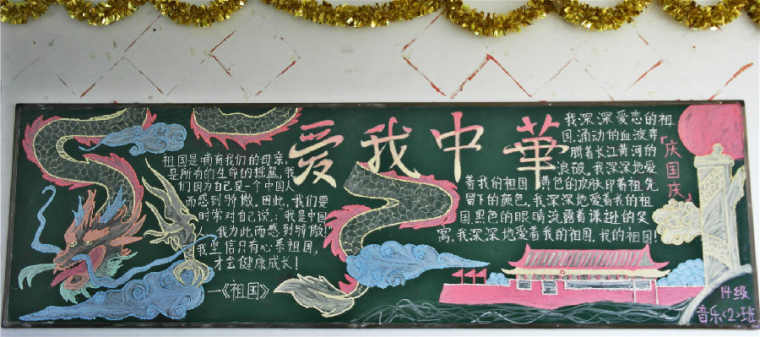 爱我中華
祖国是拥有我们的母亲,
是所有的生命的摇篮,我
们因为自己是一个中国人
而感到骄傲。因此,我们要
时常对自己说:我是中国
我为此而感到骄傲!
我坚信只有心系祖国,
才会健康成长!
—《祖国》
我深深爱恋的祖
国,涌动的血液奔
腾着长江黄河的
浪破,我深深地爱
着我们祖国 黄色的皮肤印着祖先
留下的颜色,我深深地爱着我的祖
国,黑色的眼睛流露着谦逊的
我深深地爱着我的祖国,我的祖国!
「庆国庆」
14级
音乐(2)班